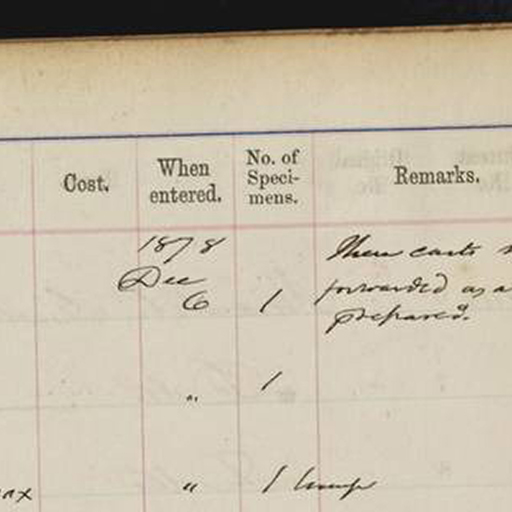 Cost.
When entered.
No. of Speci-
mens.
Remarks.
1878
Dec
6 1 These casts
forwarded as a
prepared.
" 1
" 1 lump